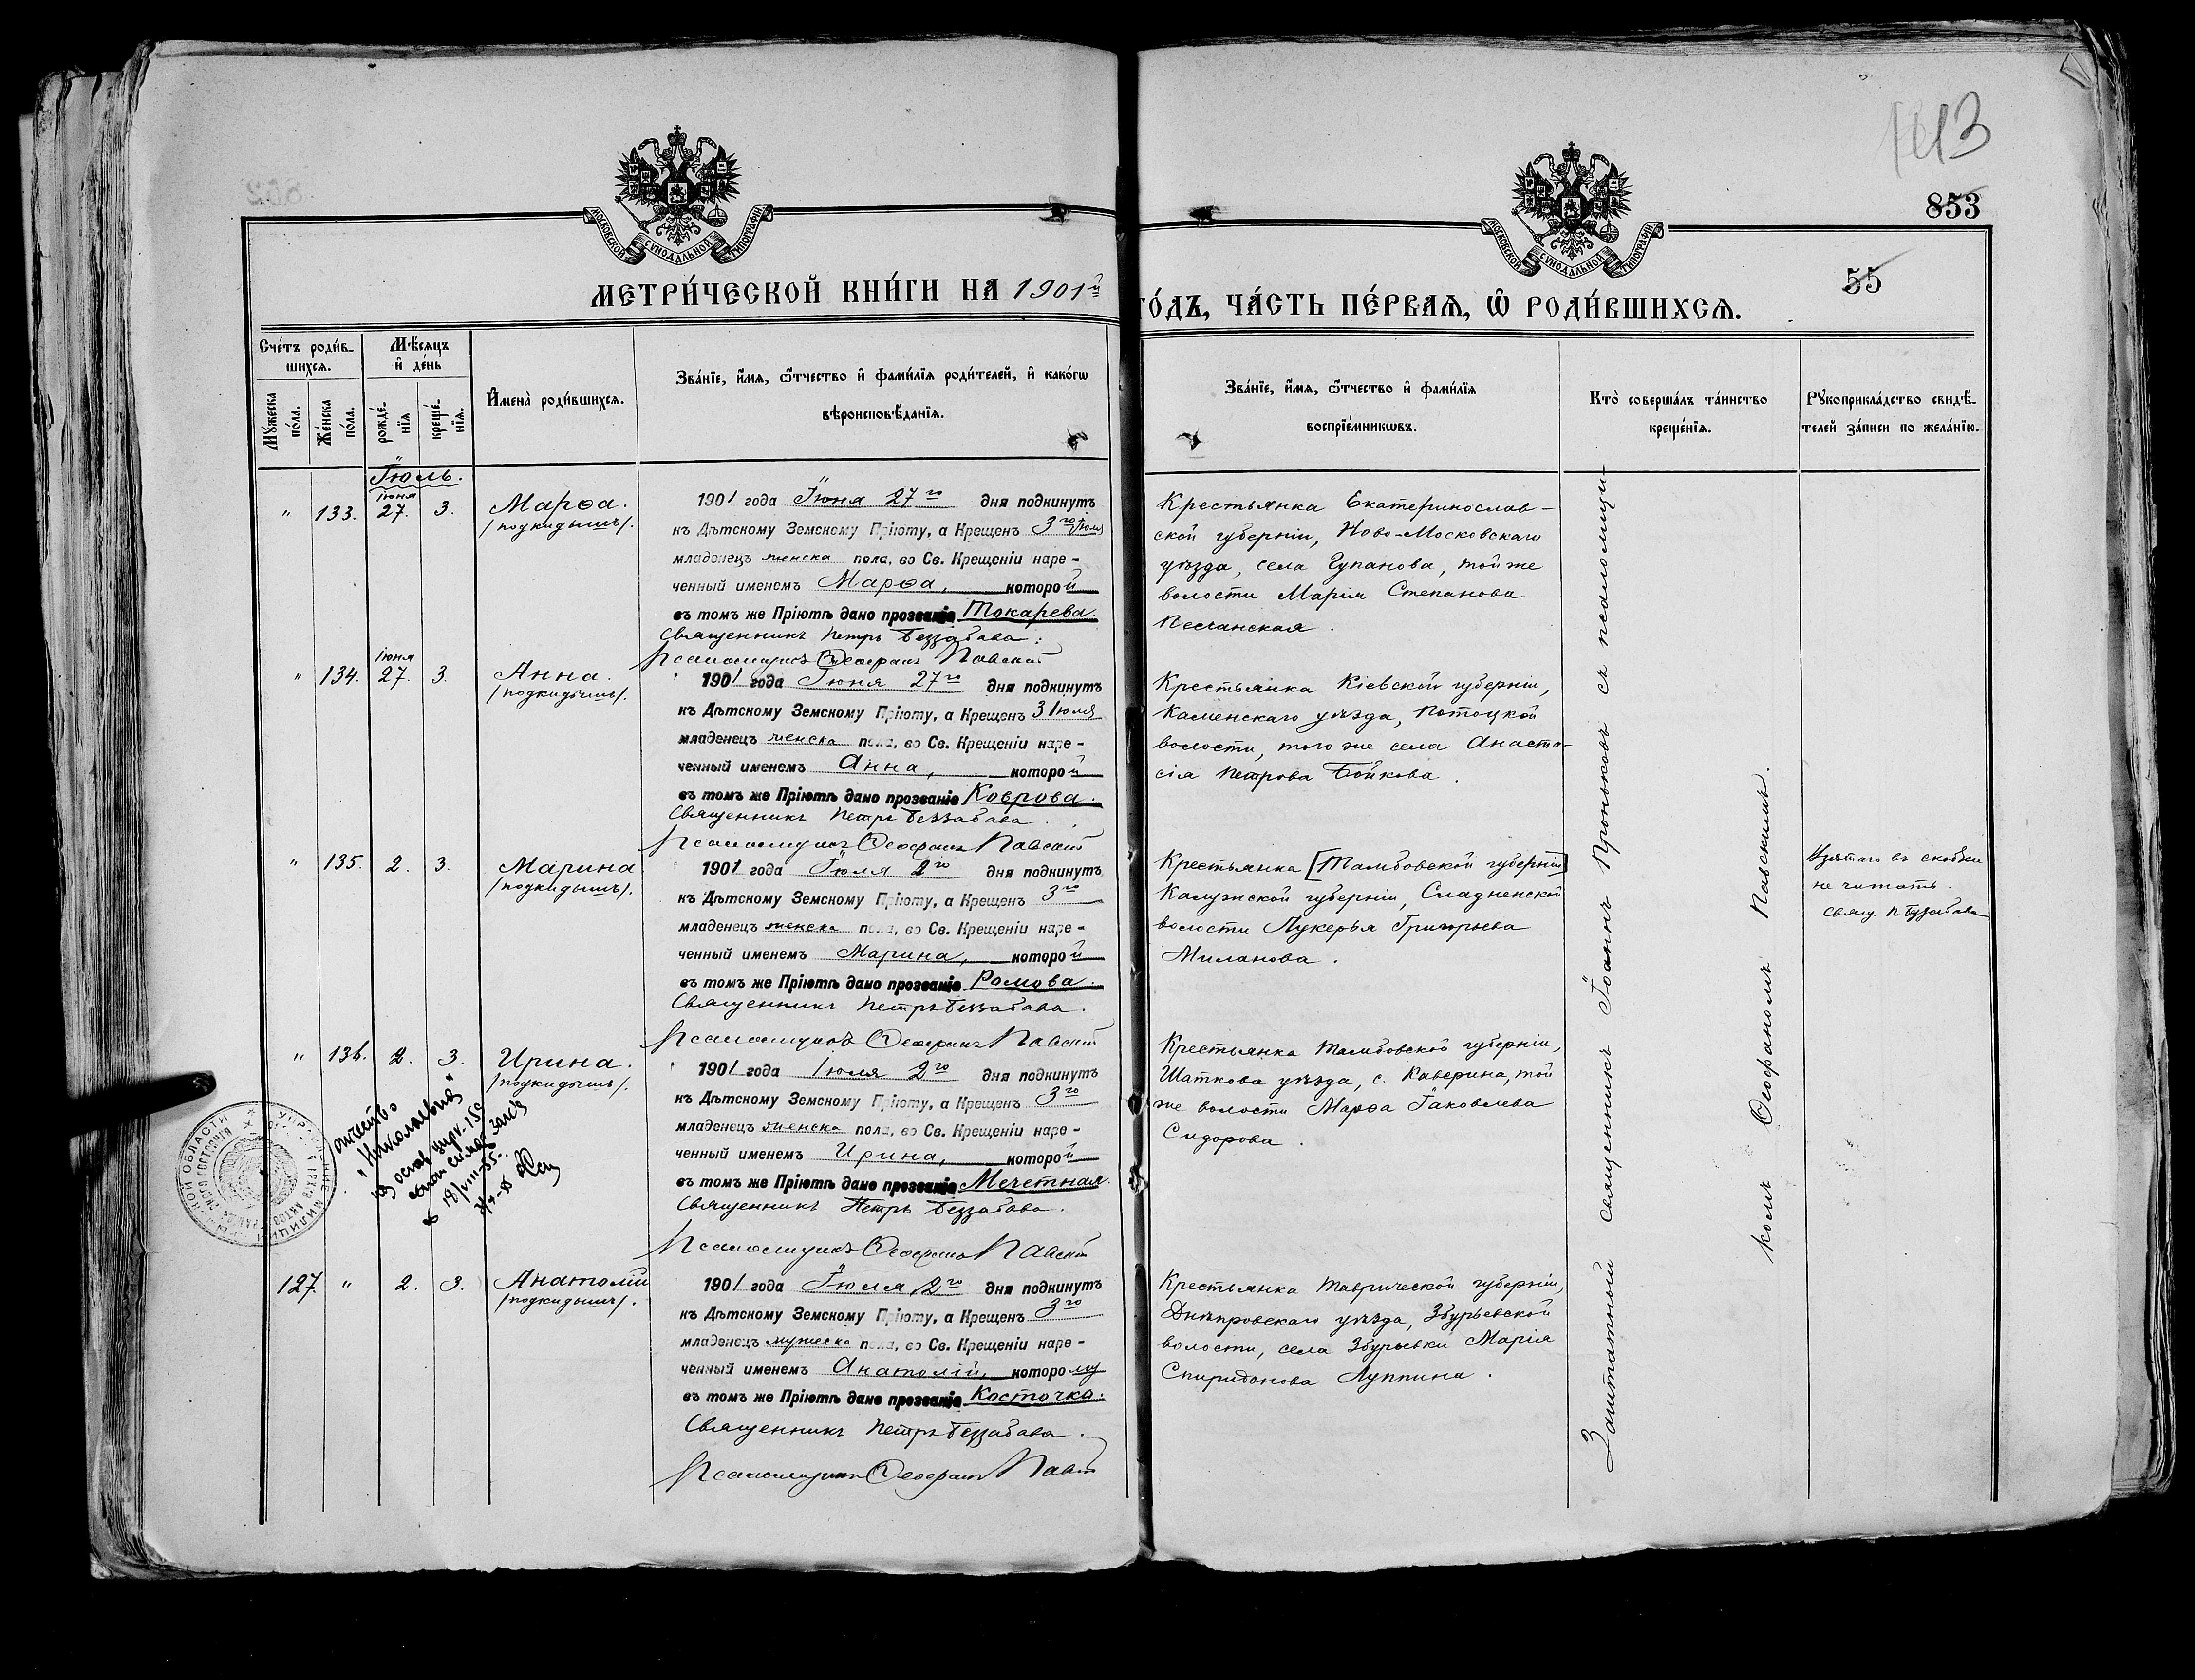 113
853
55
МОСКОВСКОЙ СѴНОДАЛЬНОЙ ТИПОГРАФІИ
МОСКОВСКОЙ СѴНОДАЛЬНОЙ ТИПОГРАФІИ
МЕТРИ́ЧЕСКОЙ КНИ́ГИ НА 1901й
ГО́ДЪ, ЧА́СТЬ ПЕ́РВАЯ, Ѡ РОДИ́ВШИХСЯ.
Сче́тъ роди́в-
шихся.
Му́жеска по́ла.
Же́нска по́ла.
Мѣ́сяцъ
и де́нь
рожде́-
нїя
креще́-
нїя.
Имена̀ роди́вшихся.
Зва́нїе, и́мя, ѻ́тчество и фами́лїя роди́телей, и како́гѡ
вѣроисповѣ́данїя.
Зва́нїе, и́мя, ѻ́тчество и фами́лїя
воспрїе́мникѡвъ.
Кто̀ соверша́лъ та́инство
креще́нїя.
Рꙋкоприкла́дство свидѣ́-
телей за́писи по жела́нїю.
Іюль.
" 133. іюня 27. 3. Марѳа.
/подкидышъ/.
1901 года Іюня 27го дня подкинутъ
къ Дѣтскому Земскому Пріюту, а Крещенъ 3го Іюля
младенецъ женска пола, во Св. Крещеніи наре-
ченный именемъ Марѳа, которой
въ томъ же Пріютѣ дано прозваніе Токарева.
Священникъ Петръ Беззабава.
Псаломщикъ Ѳеофанъ Павскій
Крестьянка Екатеринослав-
ской губерніи, Ново-Московскаго
уѣзда, села Чупанова, той же
волости Марія Степанова
Песчанская.
" 134. іюня 27. 3. Анна.
/подкидышъ/.
1901 года Іюня 27го дня подкинутъ
къ Дѣтскому Земскому Пріюту, а Крещенъ 3 Іюля
младенецъ женска пола, во Св. Крещеніи наре-
ченный именемъ Анна, которой
въ томъ же Пріютѣ дано прозваніе Коврова.
Священникъ Петръ Беззабава.
Псаломщикъ Ѳеофанъ Павскій
Крестьянка Кіевской губерніи,
Каменскаго уѣзда, Потоцкой
волости, того же села Анаста-
сія Петрова Бойкова.
" 135. 2. 3. Марина
/подкидышъ/.
1901 года Іюля 2го дня подкинутъ
къ Дѣтскому Земскому Пріюту, а Крещенъ 3го
младенецъ женска пола, во Св. Крещеніи наре-
ченный именемъ Марина, которой
въ томъ же Пріютѣ дано прозваніе Ромова.
Священникъ Петръ Беззабава.
Псаломщикъ Ѳеофанъ Павскій
Крестьянка [Тамбовской губерніи]
Калужской губерніи, Сладненской
волости Лукерья Григорьева
Миланова.
Взятаго въ скобки
не читать.
Свящ. П Беззабава
" 136. 2. 3. Ирина.
/подкидышъ/.
1901 года Іюля 2го дня подкинутъ
къ Дѣтскому Земскому Пріюту, а Крещенъ 3го
младенецъ женска пола, во Св. Крещеніи наре-
ченный именемъ Ирина, которой
въ томъ же Пріютѣ дано прозваніе Мечетная.
Священникъ Петръ Беззабава.
Псаломщикъ Ѳеофанъ Павскій
Крестьянка Тамбовской губерніи,
Шаткова уѣзда, с. Каверина, той
же волости Марѳа Іаковлева
Сидорова.
отчество
"Николаевна"
127. " 2. 3. Анатолій
/подкидышъ/.
1901 года Іюля 2го дня подкинутъ
къ Дѣтскому Земскому Пріюту, а Крещенъ 3го
младенецъ мужеска пола, во Св. Крещеніи наре-
ченный именемъ Анатолій, которому
въ томъ же Пріютѣ дано прозваніе Косточка.
Священникъ Петръ Беззабава.
Псаломщикъ Ѳеофанъ Павскій
Крестьянка Таврической губерніи,
Днѣпровскаго уѣзда, Збурьевской
волости, села Збурьевки Марія
Спиридонова Луппина.
Заштатный священникъ Іоаннъ Прольковъ съ псаломщи-
комъ Ѳеофаномъ Павскимъ.